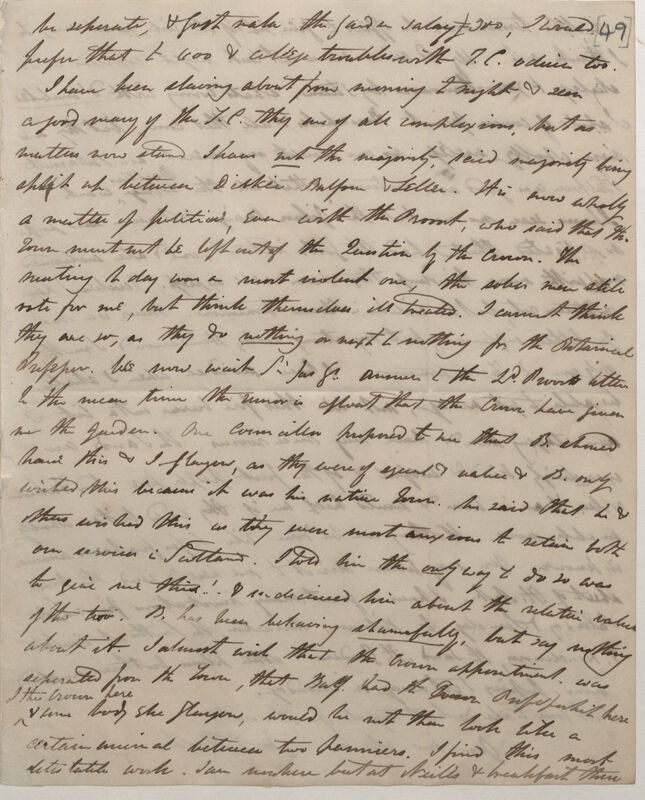 [49]
be seperate, & Govt make the Garden salary £300, I would
prefer that to 600 & college troubles with T.C. advice too.
I have been slaving about from morning to night & seen
a good many of the T.C. they are of all complexions, but as
matters now stand I have not the majority, said majority being
split up between Dickie Balfour & Seller. It is now wholly
a matter of politics, even with the Provost, who said that the
Town must not be left out of the Question by the Crown. The
meeting to day was a most violent one, the sober men still
vote for me, but think themselves ill treated. I cannot think
they are so, as they do nothing or next to nothing for the Botanical
Professor. We now wait Sir Jas Gs. answer to the Ld. Provosts letter
In the mean time the rumor is afloat that the Crown have given
me the Garden. One councillor proposed to me that B. should
have this & I Glasgow, as they were of equal value & B. only
wished this because it was his native Town. he said that he &
others wished this as they were most anxious to retain both
our services in Scotland. I told him the only way to do so was
to give me this! & undeceived him about the relative value
of the two. B. has been behaving shamefully, but say nothing
about it. I almost wish that the Crown appointment was
seperated from the Town, that Balf. had the Professorship here
I the Crown here
& some body else Glasgow, would he not then look like a
certain animal between two panniers. I find this most
detestable work. I am nowhere but at Neills & breakfast there